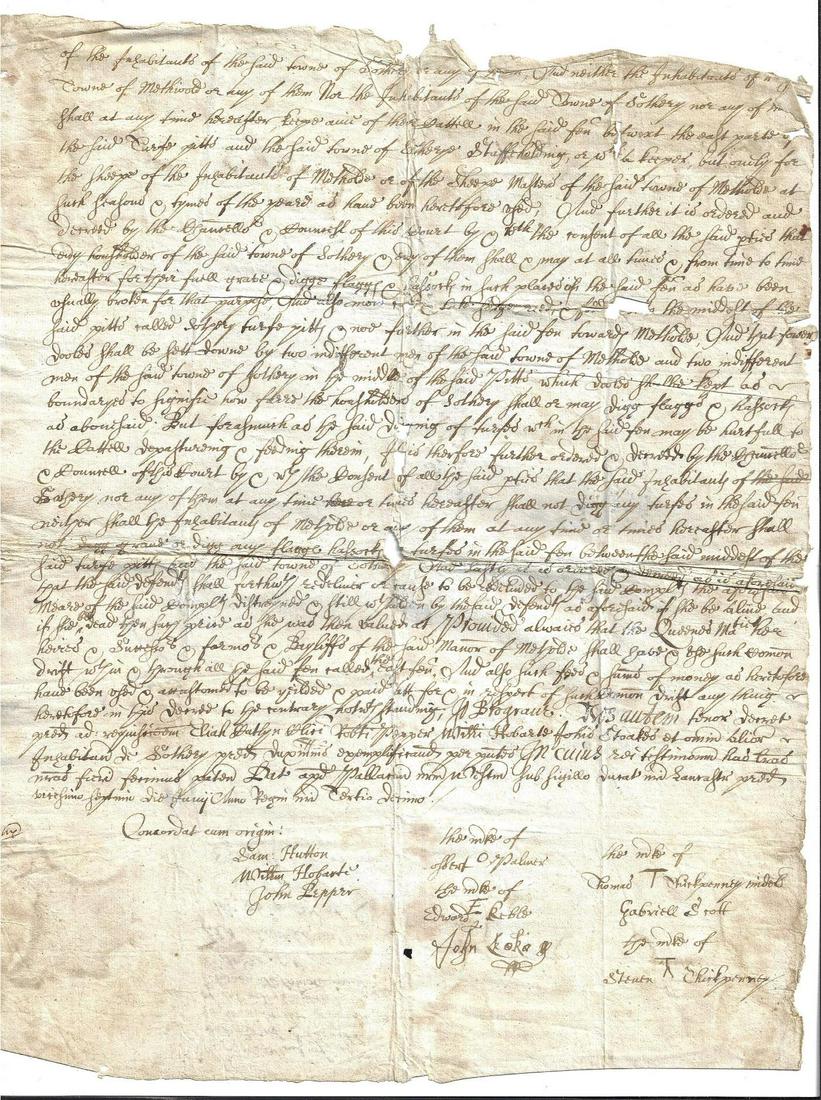 of the Inhabitants of the said towne of Sothery or any of them. And neither the Inhabitants of
Towne of Methwold or any of them Nor the Inhabitants of the said Towne of Sothery nor any of
shall at any time hereafter keepe anie of their Cattell in the said fen betwixt the east parte
the said Turfe pitts and the said towne of Sotherye Stuffeholding, or wth a keeper, but onely for
the sheepe of the Inhabitants of Metholde or of the Sheepe Masters of the said towne of Metholde at
such seasons & tymes of the yeare as have been heretofore used, And further it is ordered and
decreed by the Chauncellor & Councell of this Court by & wth the consent of all the said pties that
evy housholder of the said towne of Sothery & evy of them shall & may at all times & from time to time
hereafter for their fuell grave & digge flaggs & hassocks in such places of the said fen as have been
usually broken for that purpose And also more the middest of the
said pitts called Sothery turfe pitts & noe further in the said fen towards Metholde. And that
dooles shall be sett downe by two indifferent men of the said towne of Metholde and two indifferent
men of the said towne of Sothery in the middle of the said Pitts which dooles shalbe kept as
boundaryes to signifie how farre the housholders of Sothery shall or may digg flaggs & hassocks
as abovesaid. But forasmuch as the said digging of turfes wch in the said fen may be hurtfull to
the Cattell depastureing & feeding therein It is therefore further ordered & decreed by the Chauncellor
& Councell of this Court by & wth the Consent of all the said pties that the said Inhabitants of the said
Sothery nor any of them at any time or times hereafter shall not digg any turfes in the said fen
neither shall the Inhabitants of Metholde or any of them at any time or times hereafter shall
not grave or digg any flaggs hassocks turfes in the said fen between the said middest of the
said turfe pitts and the said towne of Sothery And lastly it is ordered as is aforesaid
that the said defendts shall forthwth redeliver or cause to be redelivered to the said Complt the
Meare of the said Complts distreyned & still wthholden by the said defendts as aforesaid if she be alive and
if she be dead then such price as she was then valued at Provided alwaies that the Queenes Matie her
heires & Successors & farmors & Bayliffs of the said Manor of Metholde shall have & use such Comon
drift wthin & through all the said fen called the East fen, And also such fees & sums of money as heretofore
have been used & accustomed to be yeilded & paid att for & in respect of such Comon drift any thing
heretofore in this decree to the contrary notwthstanding, Brograve Quiquidem tenor decret
pred ad requisicoem Eliah Catlyn Robti Pepper Willi Hobarte Johis Stookes et omni alior
Inhabitan de Sothery pred duximus exemplificand per pntes In cuius rei testimonm has lras
nras fieri fecimus paten Dat apd Pallacm nrm Westm sub sigillo Ducat nri Lancastr pred
vicesimo septimo die Junij Anno Regni nri Tertio decimo.
Concordat cum origin:
Sam: Hutton
Willm Hobarte
John Pepper
the mke of
Robert O Palmer
the mke of
Edward E Keble
John
the mke of
Thomas T Thickpenney
Gabriell Scott
the mke of
Steven T Thickpenney